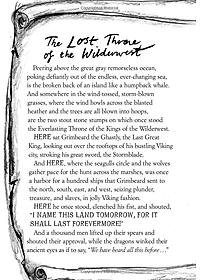 The Lost Throne
of the Wilderwest
Peering above the great gray remorseless ocean,
poking defiantly out of the endless, ever-changing sea,
is the broken back of an island like a humpback whale.
And somewhere in the wind-tossed, storm-blown
grasses, where the wind howls across the blasted
heather and the trees are all blown into hoops,
are the two stout stone stumps on which once stood
the Everlasting Throne of the Kings of the Wilderwest.
HERE sat Grimbeard the Ghastly, the Last Great
King, looking out over the rooftops of his bustling Viking
city, stroking his great sword, the Stormblade.
And HERE, where the seagulls circle and the wolves
gather pace for the hunt across the marshes, was once
a harbor for a hundred ships that Grimbeard sent to
the north, south, east, and west, seizing plunder,
treasure, and slaves, in jolly Viking fashion.
HERE he once stood, clenched his fist, and shouted,
"I NAME THIS LAND TOMORROW, FOR IT
SHALL LAST FOREVERMORE!"
And a thousand men lifted up their spears and
shouted their approval, while the dragons winked their
ancient eyes as if to say, "We have heard all this before..."